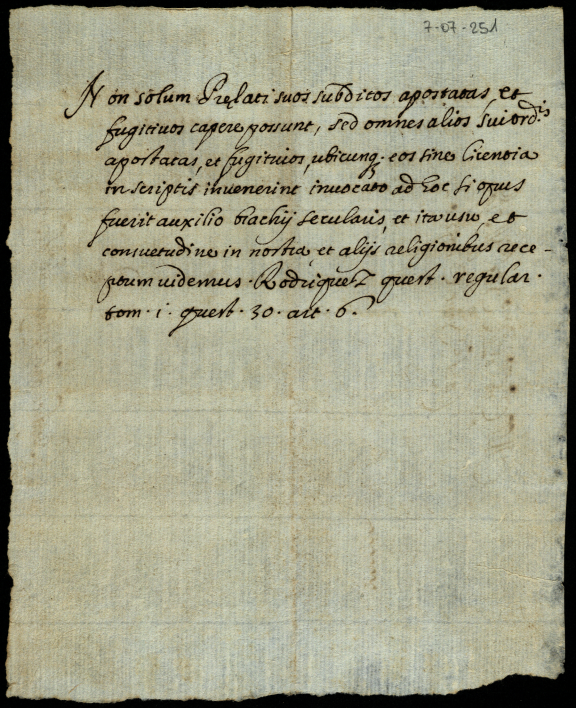 7-07-251
Non solum Pręlati suos subditos apostatas et
fugitiuos capere possunt, sed omnes alios sui ordis
apostatas, et fugitiuios, ubicunq. eos sine licentia
in scriptis invenerint invocato ad hoc si opus
fuerit auxilio brachij secularis, et ita usu, et
consuetudine in nostra et alijs religionibus rece-
ptum uidemus. Rodriquetz quest. regular.
tom. 1. quest. 30. art. 6.